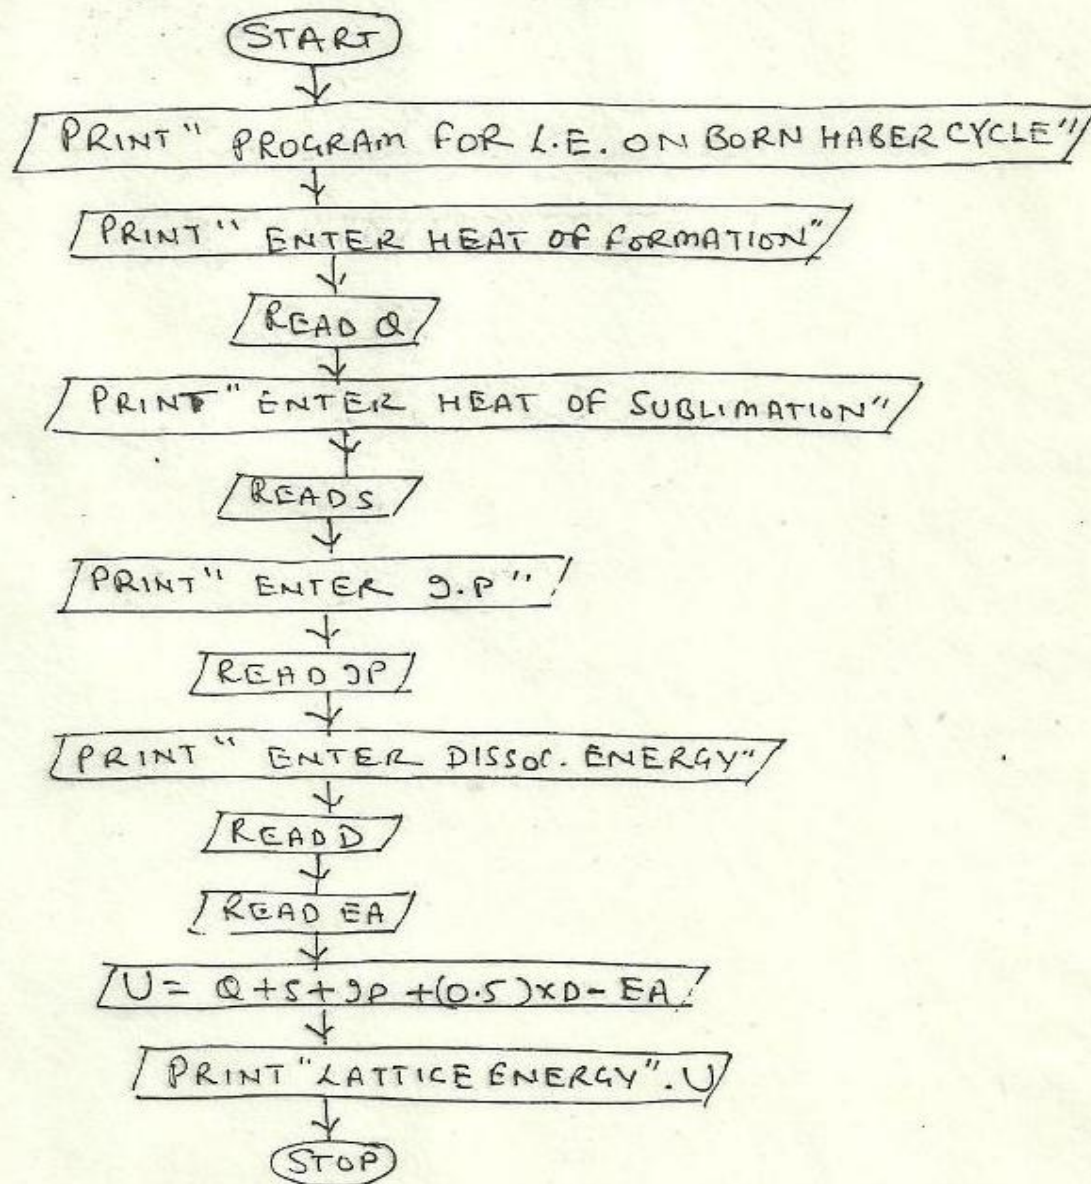 START
PRINT" PROGRAM FOR L.E. ON BORN HABER CYCLE"
PRINT" ENTER HEAT OF FORMATION"
READ Q
PRINT" ENTER HEAT OF SUBLIMATION"
READ S
PRINT" ENTER I.P"
READ IP
PRINT" ENTER DISSOC. ENERGY"
READ D
READ EA
U = Q+S+IP+(0.5)×D-EA
PRINT"LATTICE ENERGY".U
STOP